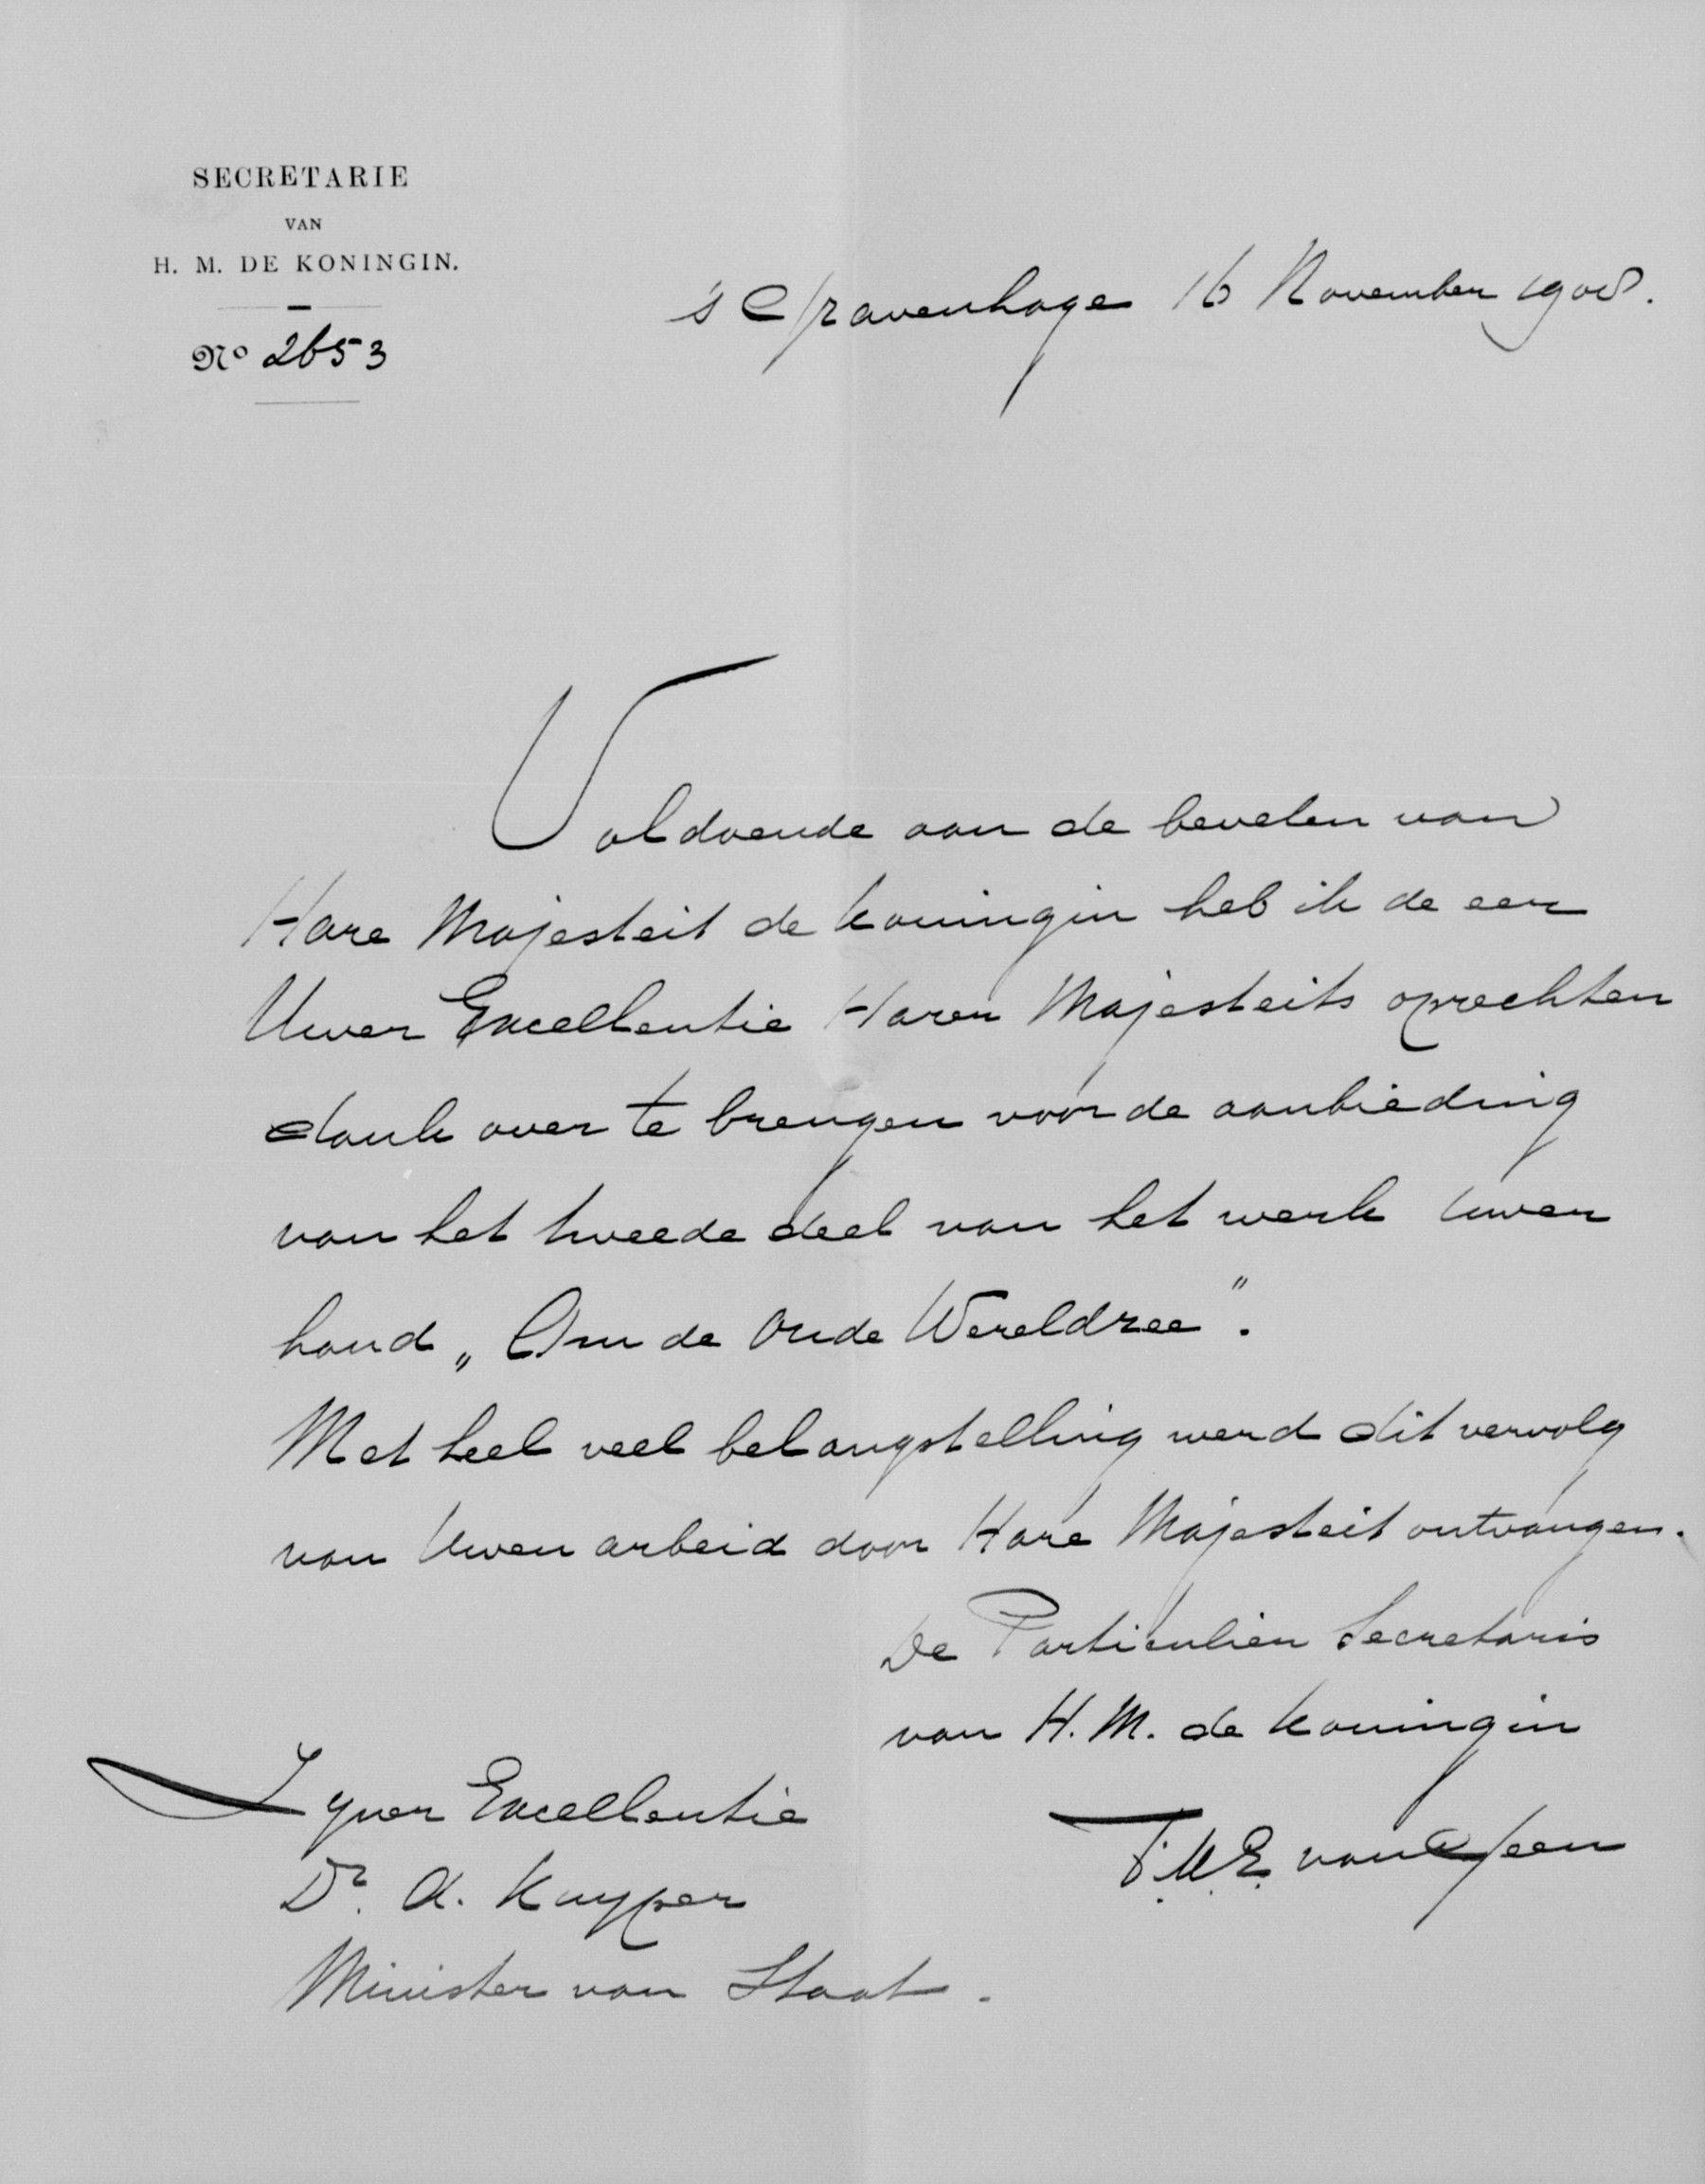 SECRETARIE
VAN
H. M. DE KONINGIN.
No 2653
's Gravenhage 16 November 1908.
Voldoende aan de bevelen van
Hare Majesteit de Koningin heb ik de eer
Uwer Excellentie Harer Majesteits oprechten
dank over te brengen voor de aanbieding
van het tweede deel van het werk Uwer
hand „Om de Oude Wereldzee".
Met heel veel belangstelling werd dit vervolg
van Uwen arbeid door Hare Majesteit ontvangen.
De Particulier Secretaris
van H. M. de Koningin
F.M.E. van Geen
Zyner Excellentie
Dr. A. Kuyper
Minister van Staat.